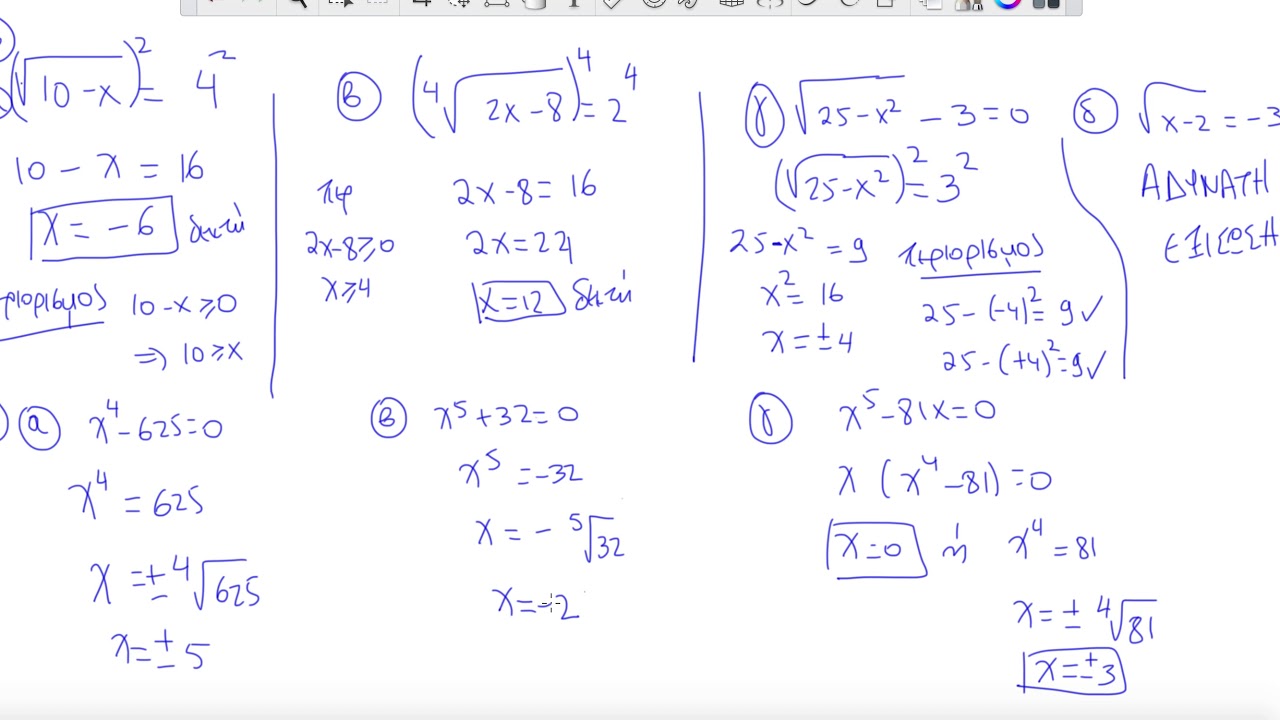 (√10-x)² = 4²
10 - x = 16
x = -6 δεκτή
ριορισμος 10-x ≥ 0
⇒ 10 ≥ x
β (⁴√2x-8)⁴ = 2⁴
2x-8 = 16
2x-8 ≥ 0
2x = 24
x ≥ 4
x = 12 δεκτή
γ √25-x² - 3 = 0
(√25-x²)² = 3²
25-x² = 9
περιορισμος
x² = 16
25-(-4)² = 9 ✓
x = ±4
25-(+4)² = 9 ✓
δ √x-2 = -3
ΑΔΥΝΑΤΗ
ΕΞΙΣΩΣΗ
α x⁴-625=0
x⁴ = 625
x = ± ⁴√625
x = ± 5
β x⁵+32=0
x⁵ = -32
x = - ⁵√32
x = -2
γ x⁵-81x=0
x (x⁴-81) = 0
x=0 ή x⁴ = 81
x = ± ⁴√81
x = ±3